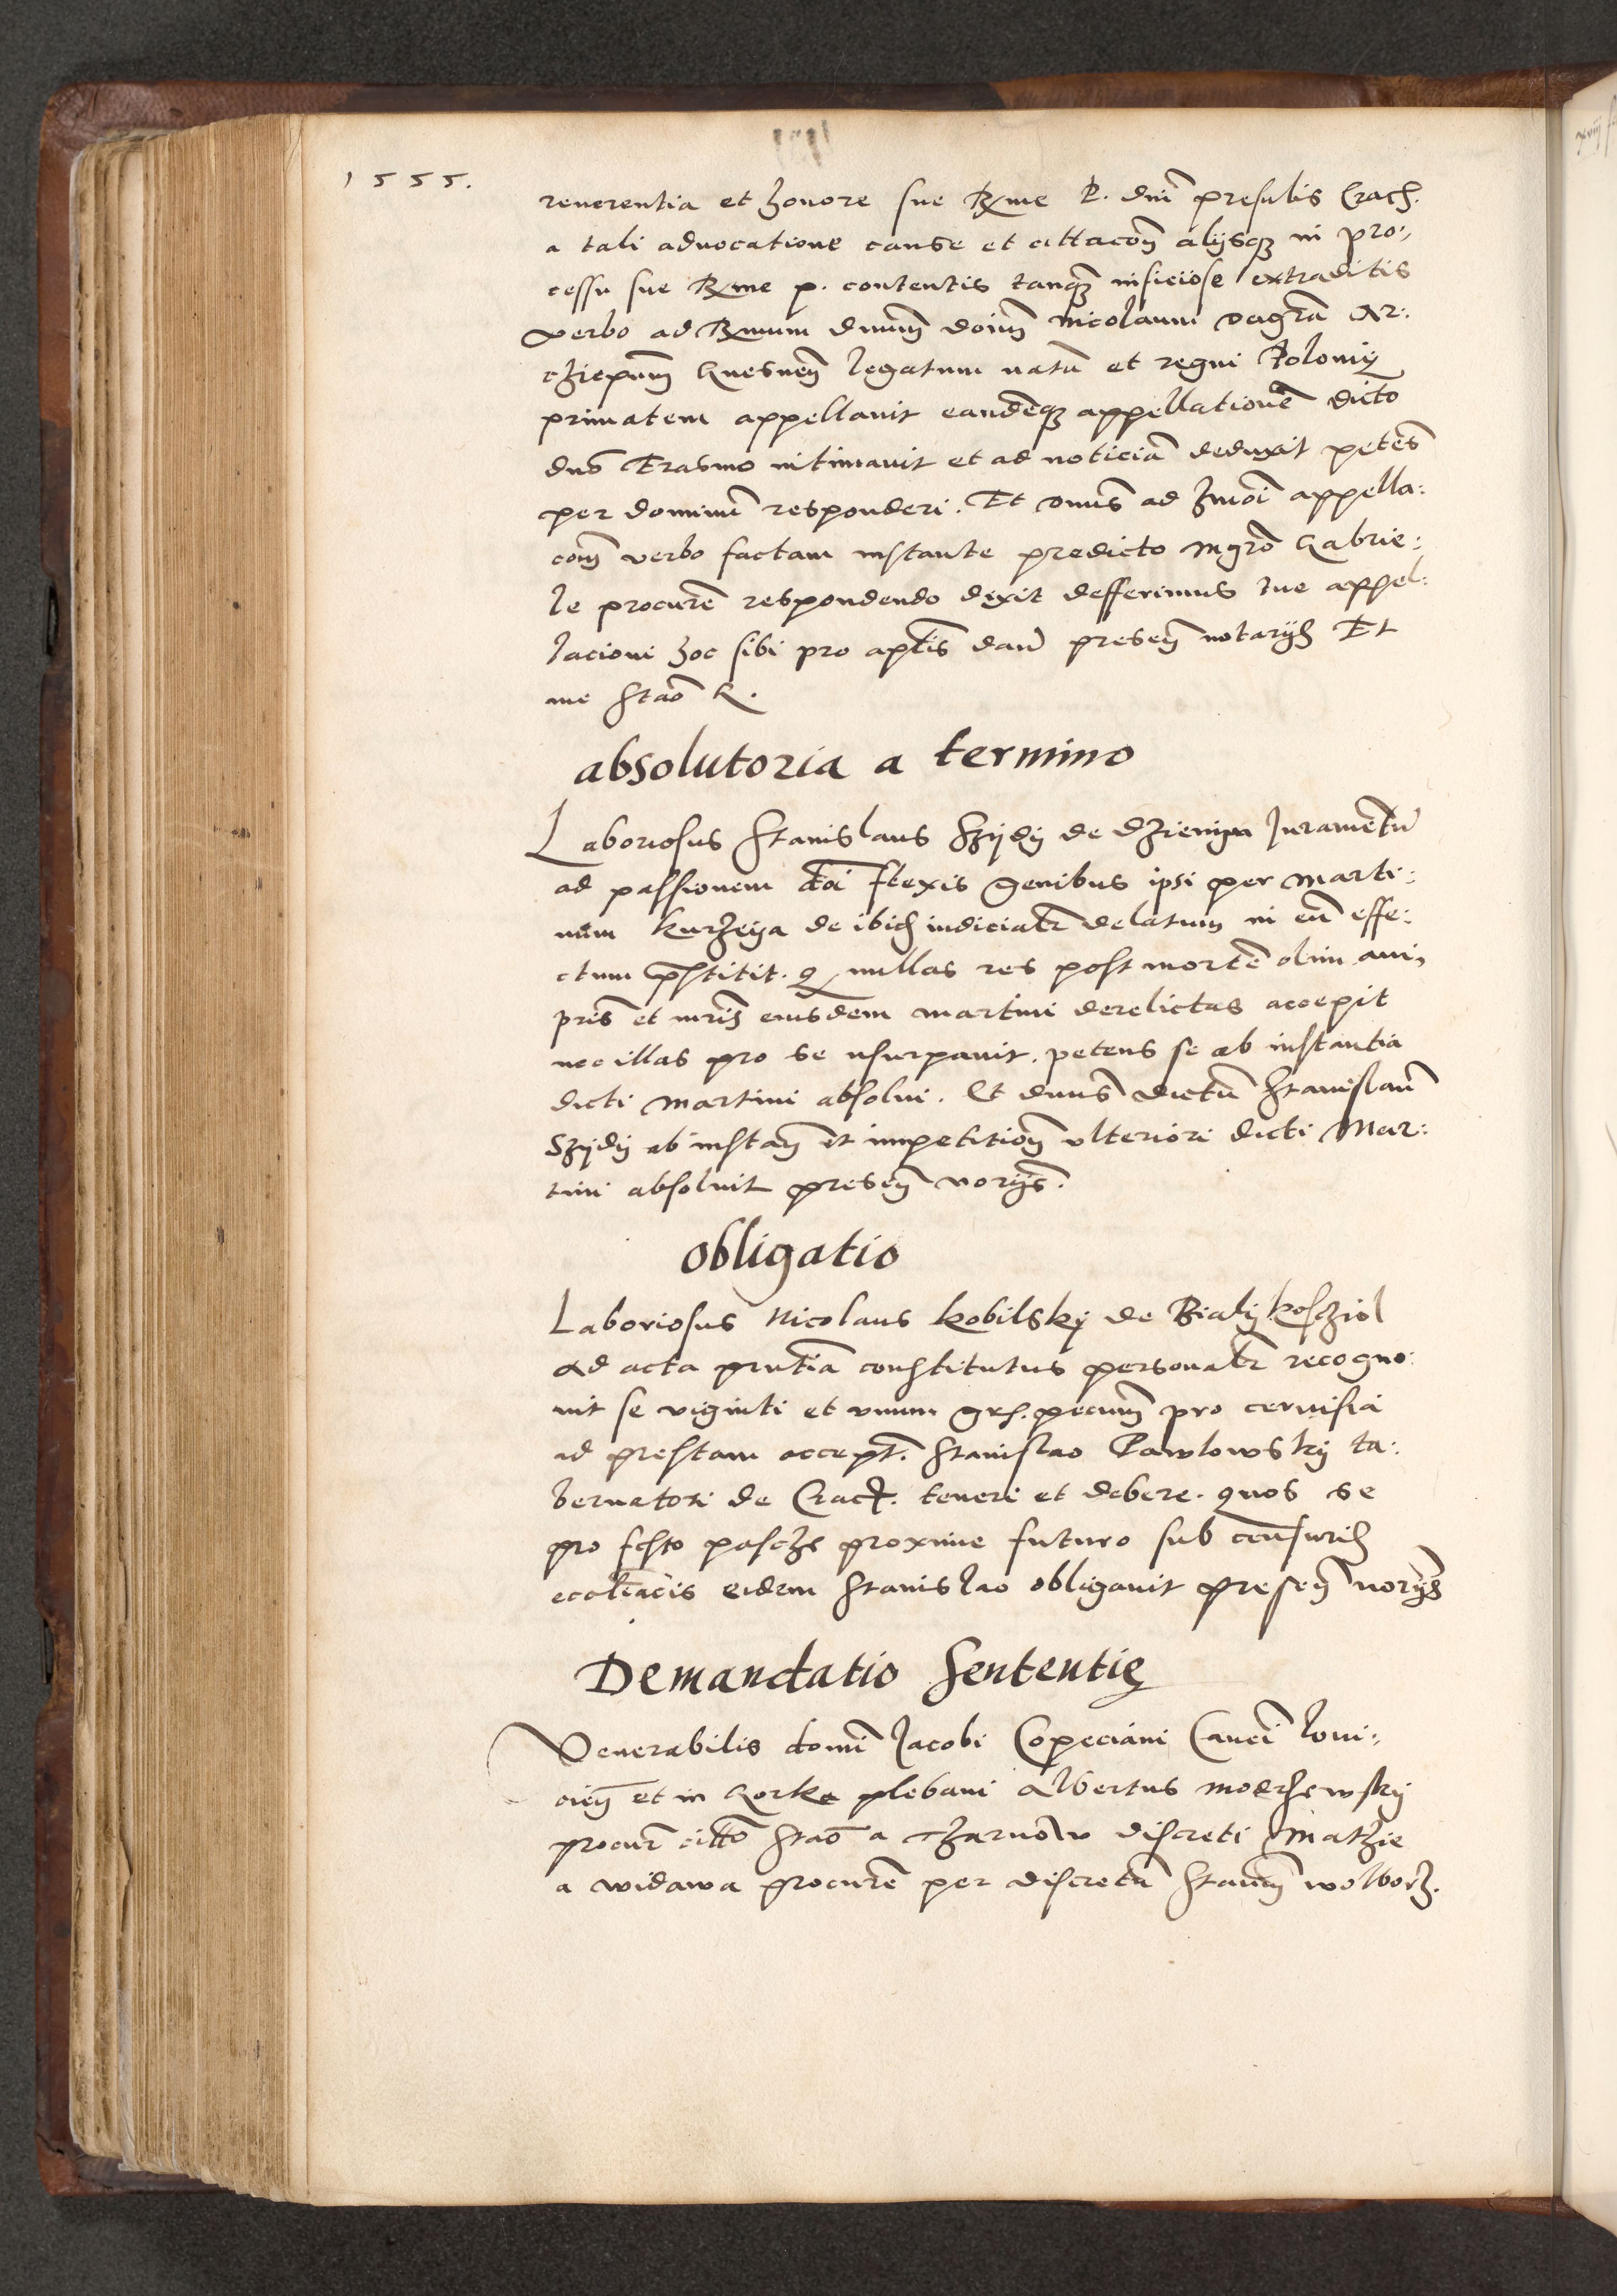 1555.
reverentia et honore sue Rme P. dni presulis Crach.
a tali advocatione cause et cittacoñ alijsq3 in pro:,
cessu sue Rme p. contentis tanq3 inficiose extraditis
verbo ad Rmum dnum doium Nicolaum dei gra Ar:
chiepum Gnesneñ legatum natu et regni Polonię
primatem appellavit eandeq3 appellatione dicto
dno Erasmo intimavit et ad noticia deduxit petes
per dominu responderi. Et dnus ad hmoi appella:
coñ verbo factam instante predicto mgro Gabrie:
le procure respondendo dixit defferimus tue appel:
lacioni hoc sibi pro aplis dañ preseñ notarijs Et
me Stao G.
absolutoria a termino
Laboriosus Stanislaus Szijdij de juramentu
ad passionem doi flexis genibus ipsi per Marti:
num Kurzeija de ibid iudicialr delatum in eu effe:
ctum pstitit. q nullas res post morte olim avi,
pris et mris eiusdem Martini derelictas accepit
nec illas pro se usurpavit. petens se ab instantia
dicti Martini absolvi. Et dnus dictu Stanislau
Szijdij ab instañ et impetitioñ ulteriori dicti Mar:
tini absolvit preseñ norijs.
Obligatio
Laboriosus Nicolaus Kobilskij de Bialij Koscziol
Ad acta pntia constitutus personalr recogno:
vit se viginti et unum grs. pecum pro cervisia
ad prestam accept. Stanislao Pawlowskij ta:
bernatori de Crach. teneri et debere. quos se
pro festo pasche proxime futuro sub censuris
eccliacis eidem Stanislao obligavit preseñ norijs
Demandatio Sententię
Venerabilis domi Jacobi Copeciani Canci lovi:,
cieñ et in Gorka plebani Albertus modrzewskij
procur citto Stao a Czarnow discreti Mathie
a widawa procure per discretu Staum wolborz.